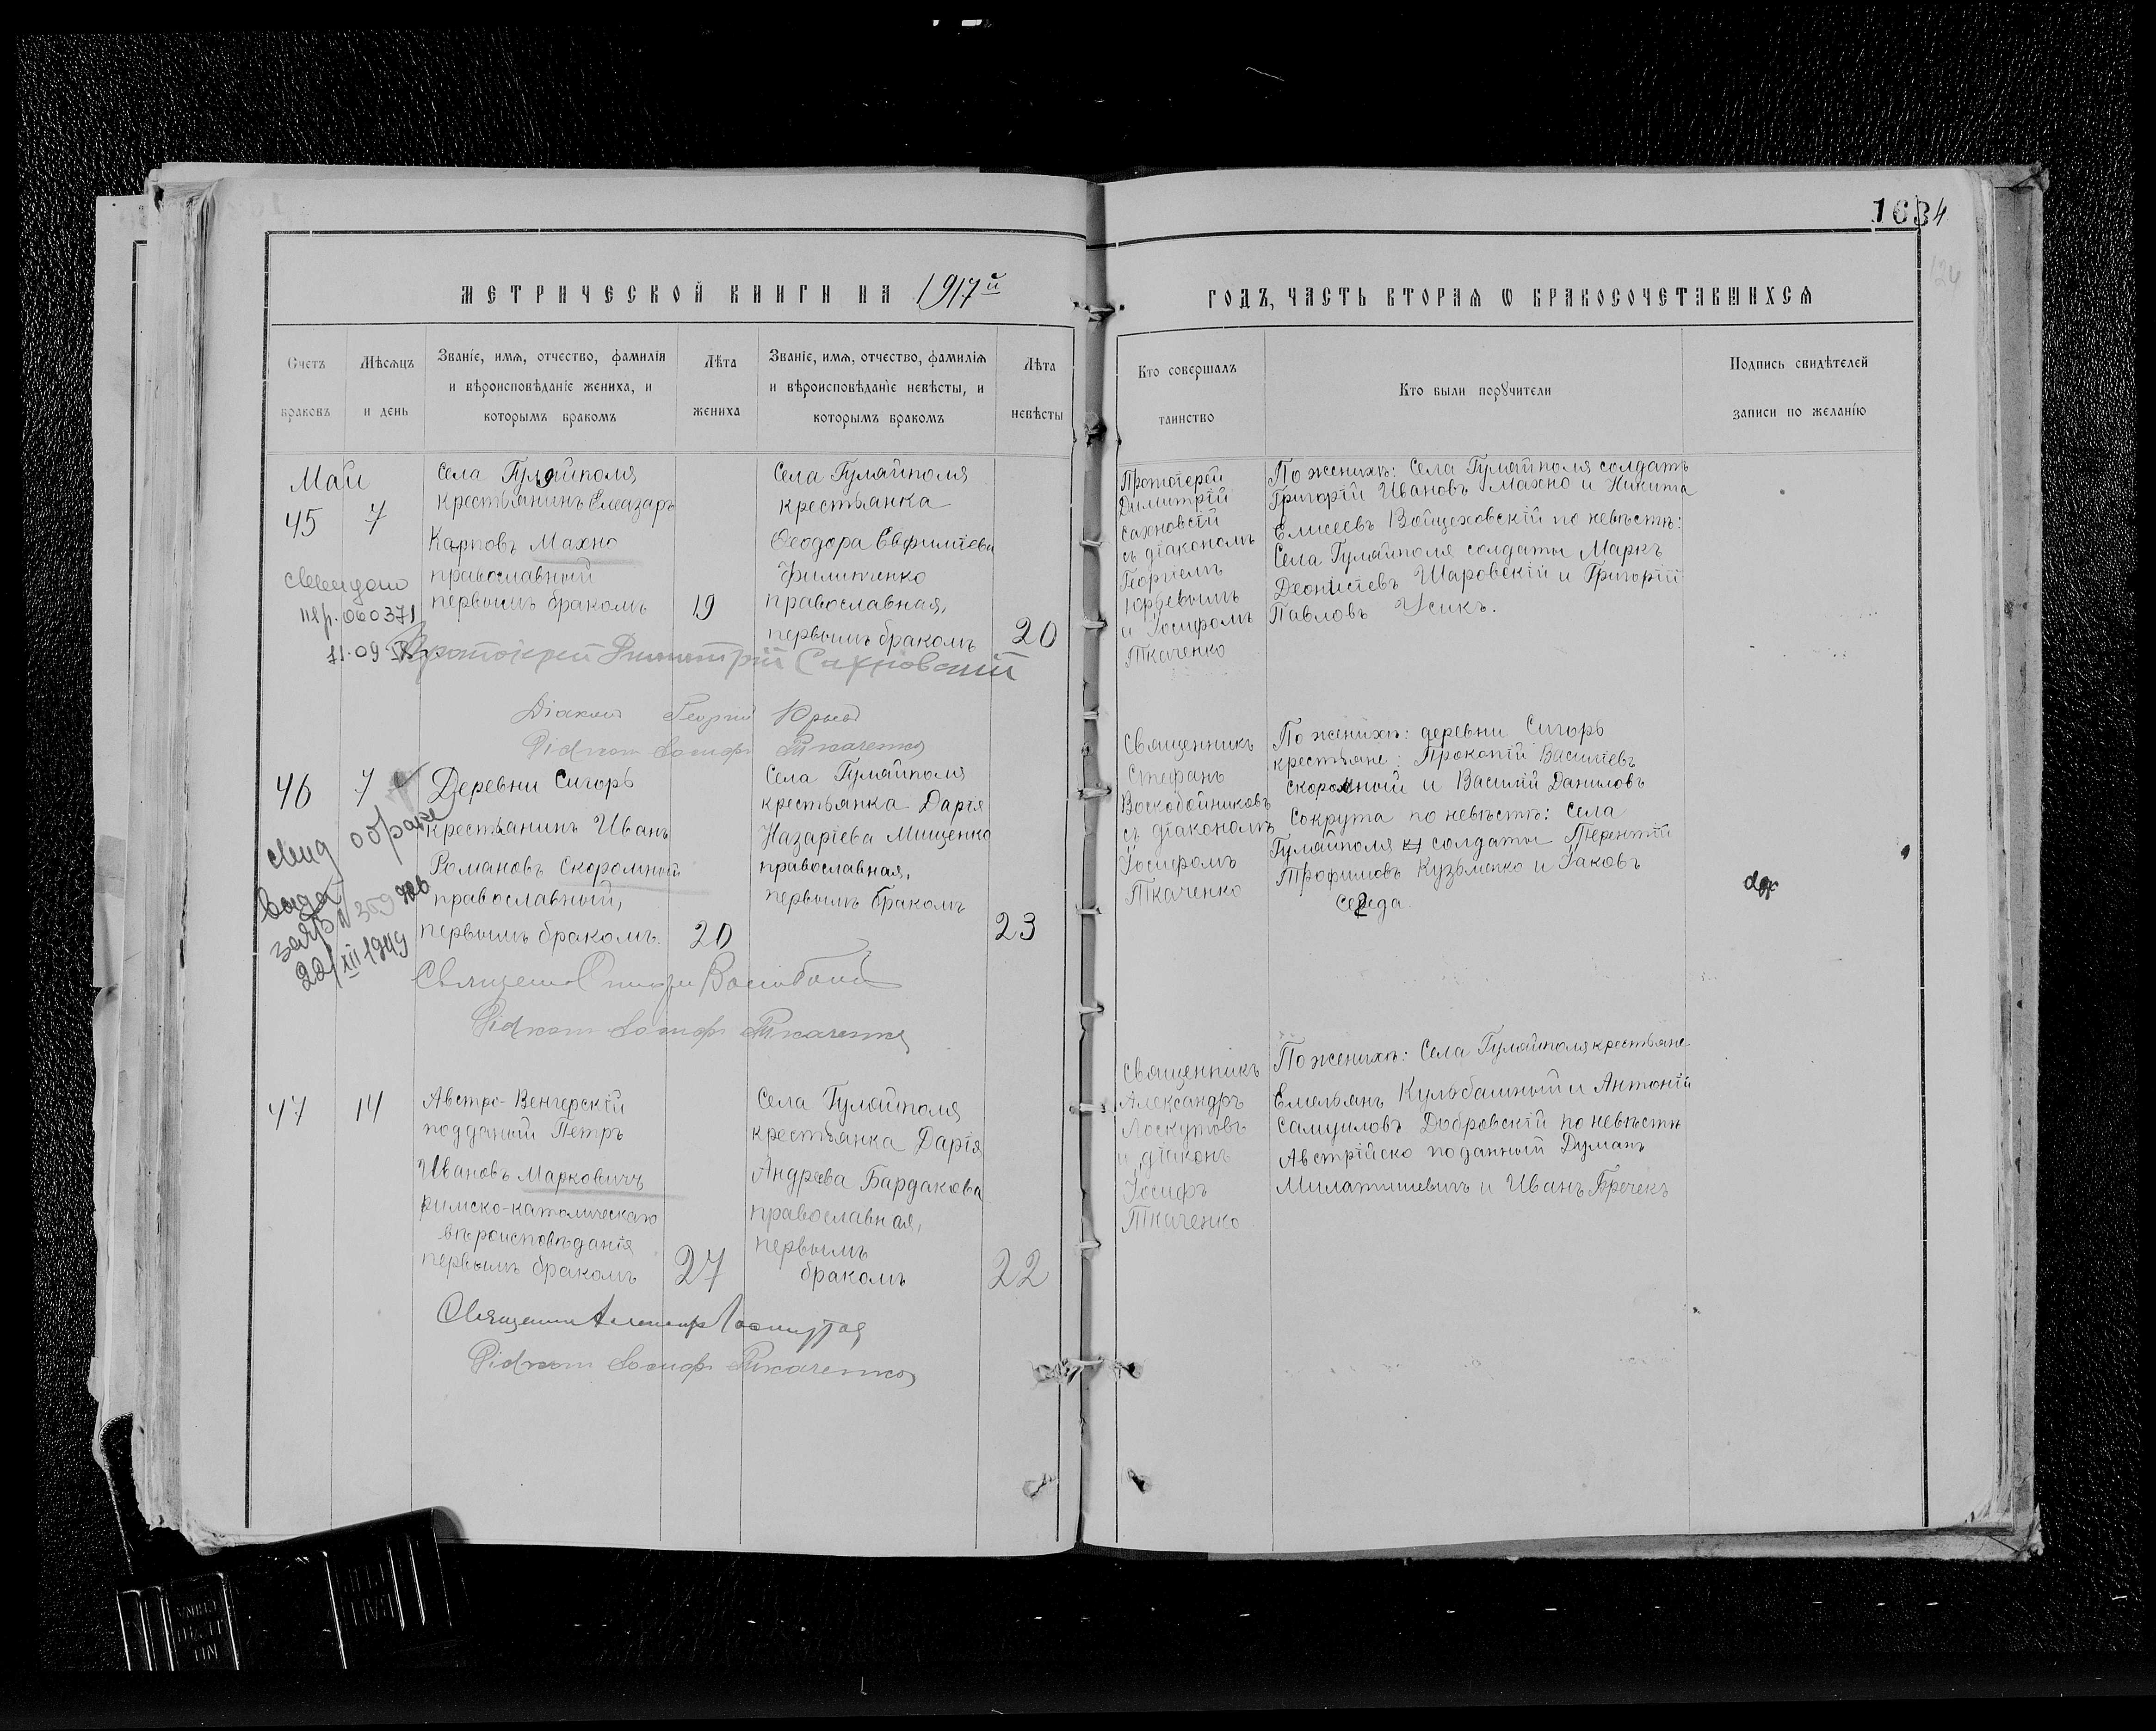 1634
МЕТРИЧЕСКОЙ КНИГИ НА 1917й
ГОДЪ, ЧАСТЬ ВТОРАЯ Ѡ БРАКОСОЧЕТАВШИХСЯ
Счетъ браковъ
Мѣсяцъ и день
Званіе, имя, отчество, фамилія
и вѣроисповѣданіе жениха, и
которымъ бракомъ
Лѣта
жениха
Званіе, имя, отчество, фамилія
и вѣроисповѣданіе невѣсты, и
которымъ бракомъ
Лѣта
невѣсты
Кто совершалъ
таинство
Кто были поручители
Подпись свидѣтелей
записи по желанію
Май
45 7
060371
11.09
Села Гуляйполя
крестьянинъ Елеазаръ
Карповъ Махно
православный
первымъ бракомъ
19
Села Гуляйполя
крестьянка
Ѳеодора Евфиміева
Филипенко
православная,
первымъ бракомъ
20
Протоіерей
Димитрій
Сахновскій
съ діакономъ
Георгіемъ
Юрьевымъ
и Іосифомъ
Ткаченко
По женихѣ: Села Гуляйполя солдатъ
Григорій Ивановъ Махно и Никита
Елисеевъ Войцеховскій по невѣстѣ:
Села Гуляйполя солдаты Маркъ
Деонисіевъ Шаровскій и Григорій
Павловъ Усикъ.
Протоіерей Димитрій Сахновскій
Діаконъ Георгій
Діаконъ Іосифъ Ткаченко
46 7
свид о браке
выдан
359
22/XII 1949
Деревни Сигоръ
крестьянинъ Иванъ
Романовъ Скоромный
православный,
первымъ бракомъ.
20
Села Гуляйполя
крестьянка Дарія
Назаріева Мищенко
православная,
первымъ бракомъ
23
Священникъ
Стефанъ
Воскобойниковъ
съ діакономъ
Іосифомъ
Ткаченко
По женихѣ: деревни Сигоръ
крестьяне: Прокопій Василіевъ
Скоромный и Василій Даниловъ
Сокрута по невѣстѣ: Села
Гуляйполя солдаты Терентій
Трофимовъ Кузьменко и Іаковъ
Середа.
Діаконъ Іосифъ Ткаченко
47 14
Австро-Венгерскій
подданый Петръ
Ивановъ Марковичъ
римско-католическаго
вѣроисповѣданія
первымъ бракомъ
27
Села Гуляйполя
крестьянка Дарія
Андрѣева Бардакова
православная,
первымъ
бракомъ
22
Священникъ
Александръ
Лоскутовъ
и діаконъ
Іосифъ
Ткаченко
По женихѣ: Села Гуляйполя крестьяне
Емельянъ Кульбашный и Антоній
Самуиловъ Добровскій по невѣстѣ
Австрійско поданный Думанъ
и Иванъ Бречекъ
Діаконъ Іосифъ Ткаченко